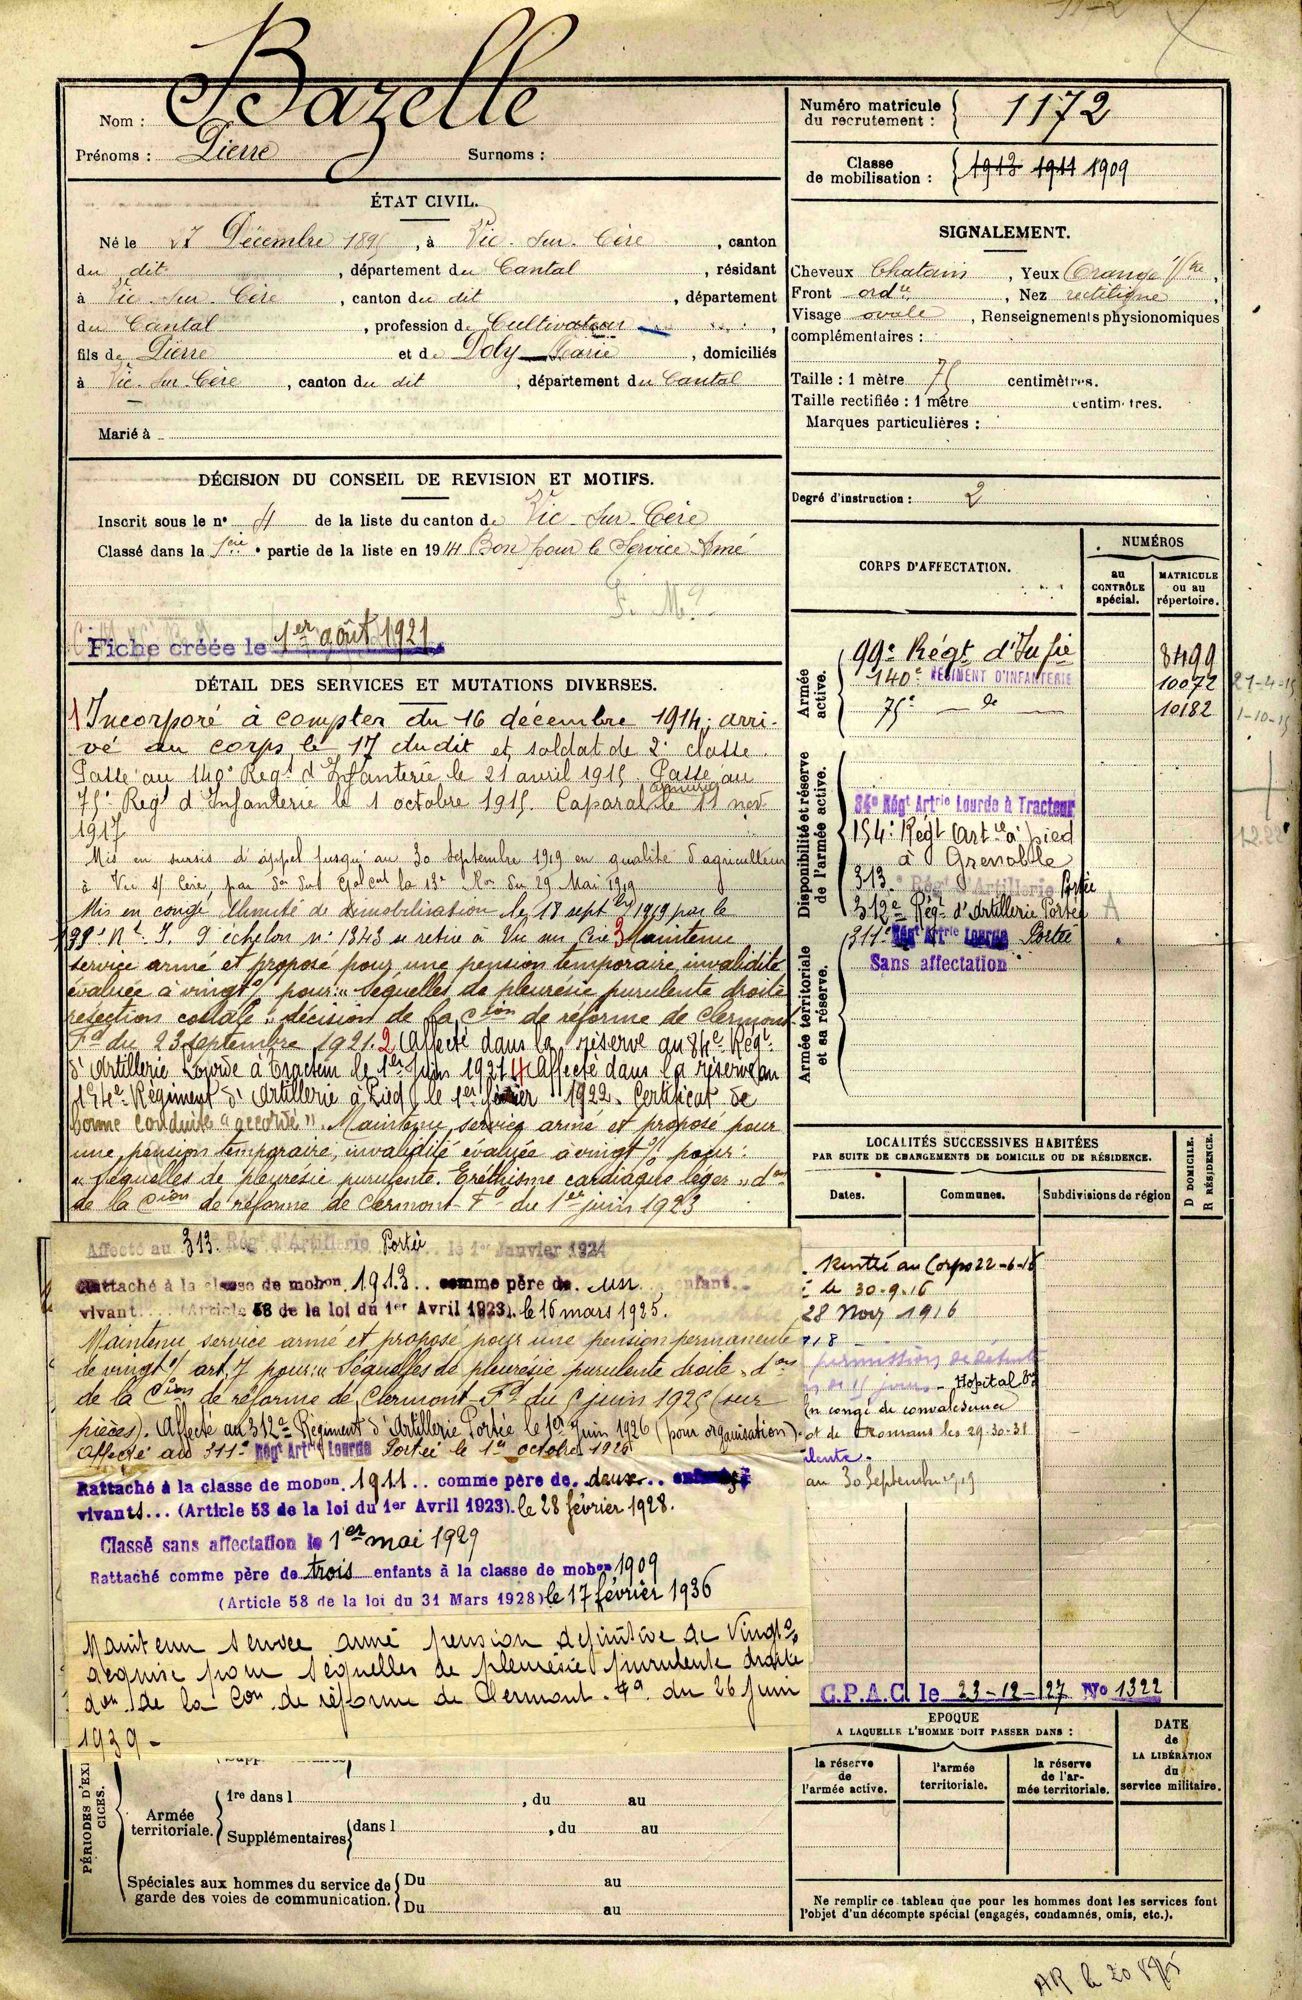 Nom : Bazelle
Prénoms : Pierre Surnoms :
Numéro matricule du recrutement : 1172
Classe de mobilisation : 1913 1911 1909
ÉTAT CIVIL.
Né le 27 Décembre 1895, à Vic-sur-Cère, canton
du dit, département du Cantal, résidant
à Vic-sur-Cère, canton du dit, département
du Cantal, profession de Cultivateur
fils de Pierre et de Doly Marie, domiciliés
à Vic-sur-Cère, canton du dit, département du Cantal
Marié à
SIGNALEMENT.
Cheveux Chatain, Yeux Orangé
Front ord.re, Nez rectiligne,
Visage ovale, Renseignements physionomiques
complémentaires :
Taille : 1 mètre 75 centimètres.
Taille rectifiée : 1 mètre centimètres.
Marques particulières :
Degré d'instruction : 2
DÉCISION DU CONSEIL DE REVISION ET MOTIFS.
Inscrit sous le n° 4 de la liste du canton de Vic-sur-Cère
Classé dans la 1ère partie de la liste en 1914 Bon pour le Service Armé
Fiche créée le 1er août 1921
CORPS D'AFFECTATION.
NUMÉROS
au CONTRÔLE spécial.
MATRICULE OU AU répertoire.
Armée active.
99e Régt d'Infie 8499
140e RÉGIMENT D'INFANTERIE 10072 21-4-15
75e — de — 10182 1-10-15
Disponibilité et réserve de l'armée active.
84e Régt Artrie Lourde à Tracteur
154e Régt Artie à pied
à Grenoble
313e Régt d'Artillerie Portée
312e Régt d'Artillerie Portée A
311e Régt Artrie Lourde Portée
Armée territoriale et sa réserve.
Sans affectation
DÉTAIL DES SERVICES ET MUTATIONS DIVERSES.
1 Incorporé à compter du 16 décembre 1914; arri-
vé au corps le 17 dudit et soldat de 2e classe.
Passé au 140e Regt d'Infanterie le 21 avril 1915. Passé au
75e Regt d'Infanterie le 1 octobre 1915. Caporal le 11 nov
1917
Mis en sursis d'appel jusqu'au 30 septembre 1919 en qualité d'agriculteur
à Vic s/ Cère, par la 13e Ron du 29 Mai 1919
Mis en congé illimité de démobilisation le 18 septbre 1919 par le
139e Rt I. 9 échelon n° 1343 se retire à Vic sur Cère 3 Maintenu
service armé et proposé pour une pension temporaire, invalidité
évaluée à vingt % pour: "Séquelles de pleurésie purulente droite
résection costale", décision de la Cion de réforme de Clermont-
Fd du 23 septembre 1921. 2 Affecté dans la réserve au 84e Régt
d'Artillerie Lourde à Tracteur le 1er Juin 1921 4 Affecté dans la réserve au
154e Régiment d'Artillerie à Pied le 1er février 1922. Certificat de
bonne conduite "accordé". Maintenu service armé et proposé pour
une pension temporaire, invalidité évaluée à vingt % pour:
"Séquelles de pleurésie purulente. Eréthisme cardiaque léger" don
de la Cion de réforme de Clermont-Fd du 1er juin 1923
Affecté au 313e Régt d'Artillerie Portée le 1er Janvier 1924
Rattaché à la classe de mobon 1913 comme père de un enfant
vivant (Article 58 de la loi du 1er Avril 1923). le 16 mars 1925.
Maintenu service armé et proposé pour une pension permanente
de vingt % art 7 pour: "Séquelles de pleurésie purulente droite" don
de la Cion de réforme de Clermont-Fd du 5 juin 1925 (sur
pièces). Affecté au 312e Régiment d'Artillerie Portée le 1er Juin 1926 (pour organisation).
Affecté au 311e Régt Artrie Lourde Portée le 1er octobre 1926
Rattaché à la classe de mobon 1911 comme père de deux enfants
vivants... (Article 58 de la loi du 1er Avril 1923). le 28 février 1928.
Classé sans affectation le 1er mai 1929
Rattaché comme père de trois enfants à la classe de mobon 1909
(Article 58 de la loi du 31 Mars 1928) le 17 février 1936
Maintenu service armé pension définitive de Vingt %
acquise pour séquelles de pleurésie purulente droite
don de la Con de réforme de Clermont-Fd du 26 juin
1939 -
LOCALITÉS SUCCESSIVES HABITÉES
PAR SUITE DE CHANGEMENTS DE DOMICILE OU DE RÉSIDENCE.
D DOMICILE. R RÉSIDENCE.
Dates. Communes. Subdivisions de région
Rentré au Corps 22-6-16
le 30-9-16
28 Nov 1916
permission de détente
15 jours - Hopital
En congé de convalescence
et de Romans les 29-30-31
au 30 Septembre 1919
C.P.A.C. le 23-12-27 No 1322
EPOQUE
A LAQUELLE L'HOMME DOIT PASSER DANS :
la réserve de l'armée active.
l'armée territoriale.
la réserve de l'armée territoriale.
DATE de LA LIBÉRATION du service militaire.
PÉRIODES D'EXERCICES.
Armée territoriale.
1re dans l , du au
Supplémentaires dans l , du au
Spéciales aux hommes du service de garde des voies de communication.
Du au
Du au
Ne remplir ce tableau que pour les hommes dont les services font
l'objet d'un décompte spécial (engagés, condamnés, omis, etc.).